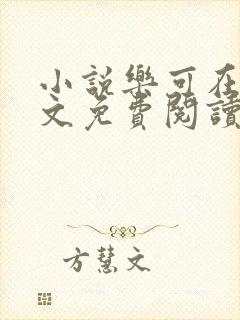 小說樂可在
文免費閱讀
方慧文